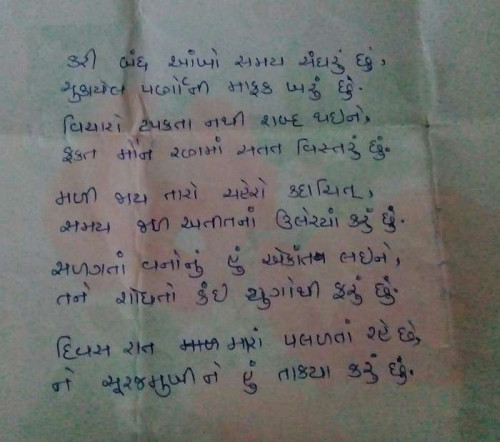 કરી બંધ આંખો સમય સંઘરું છું,
સુકાયેલ પર્ણોની માફક ખરું છું.
વિચારો ટપકતા નથી શબ્દ થઇને,
ફકત મૌન રણમાં સતત વિસ્તરું છું.
મળી જાય તારો ચહેરો કદાચિત્,
સમય જળ અતીતનાં ઉલેચ્યાં કરું છું.
સળગતાં વનોનું હું એકાંત લઇને,
તને શોધતો કંઇ યુગોથી ફરું છું.
દિવસ રાત મારાં પલળતાં રહે છે,
ને સૂરજમુખીને હું તાક્યા કરું છું.